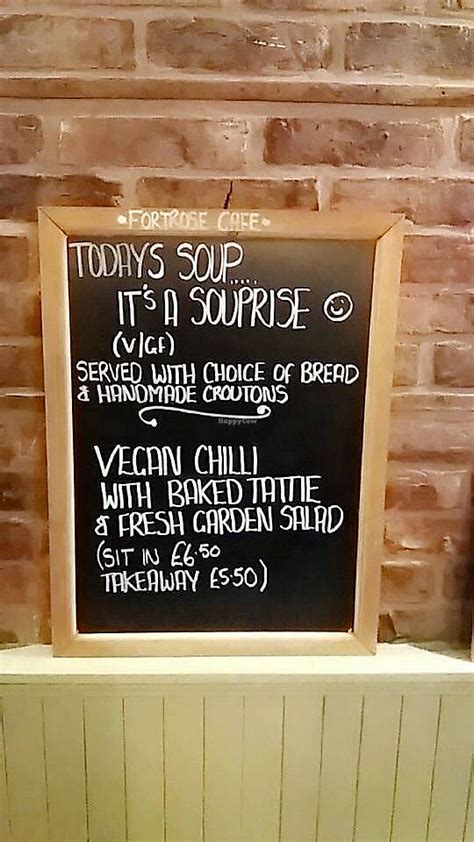 •FORTROSE CAFE•
TODAYS SOUP.....
IT'S A SOUPRISE ☺
(V/GF)
SERVED WITH CHOICE OF BREAD
& HANDMADE CROUTONS
HappyCow
VEGAN CHILLI
WITH BAKED TATTIE
& FRESH GARDEN SALAD
(SIT IN £6.50
TAKEAWAY £5.50)